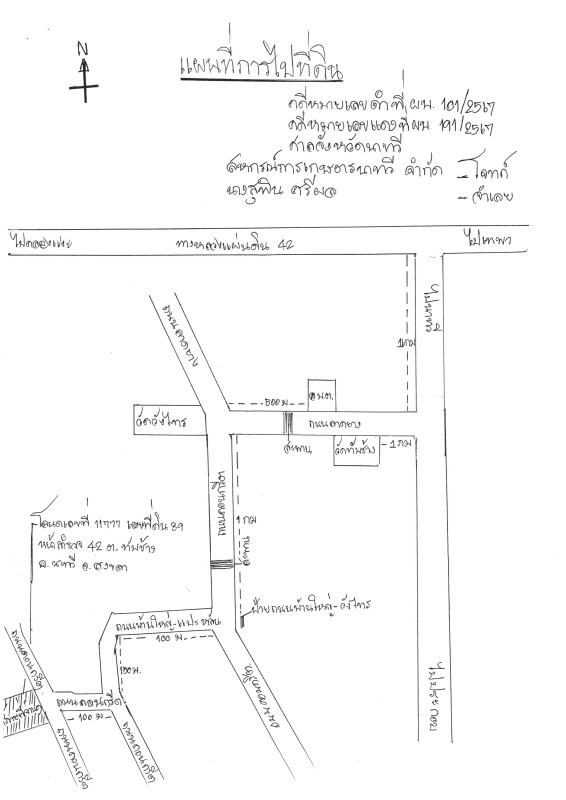 N
แผนที่การไปที่ดิน
คดีหมายเลขดำที่ ผบ. 101/2567
คดีหมายเลขแดงที่ ผบ. 191/2567
ศาลจังหวัดนาทวี
สหกรณ์การเกษตรนาทวี จำกัด - โจทก์
นางสุพิน ศรีผล - จำเลย
ไปคลองแงะ
ทางหลวงแผ่นดิน 42
ไปเทพา
ไปนาทวี
1 กม
ถนนลาดยาง
500 ม
อบต.
วัดวังไทร
ถนนลาดยาง
สะพาน
วัดทับช้าง
1 กม
ถนนลาดยาง
1 กม
สะพาน
โฉนดเลขที่ 11777 เลขที่ดิน 89
หน้าสำรวจ 42 ต. ทับช้าง
อ. นาทวี จ. สงขลา
ป้ายถนนบ้านใหญ่-วังไทร
100 ม
100 ม.
ถนนคอนกรีต
ถนนคอนกรีต
100 ม
ถนนคอนกรีต
ถนนคอนกรีต